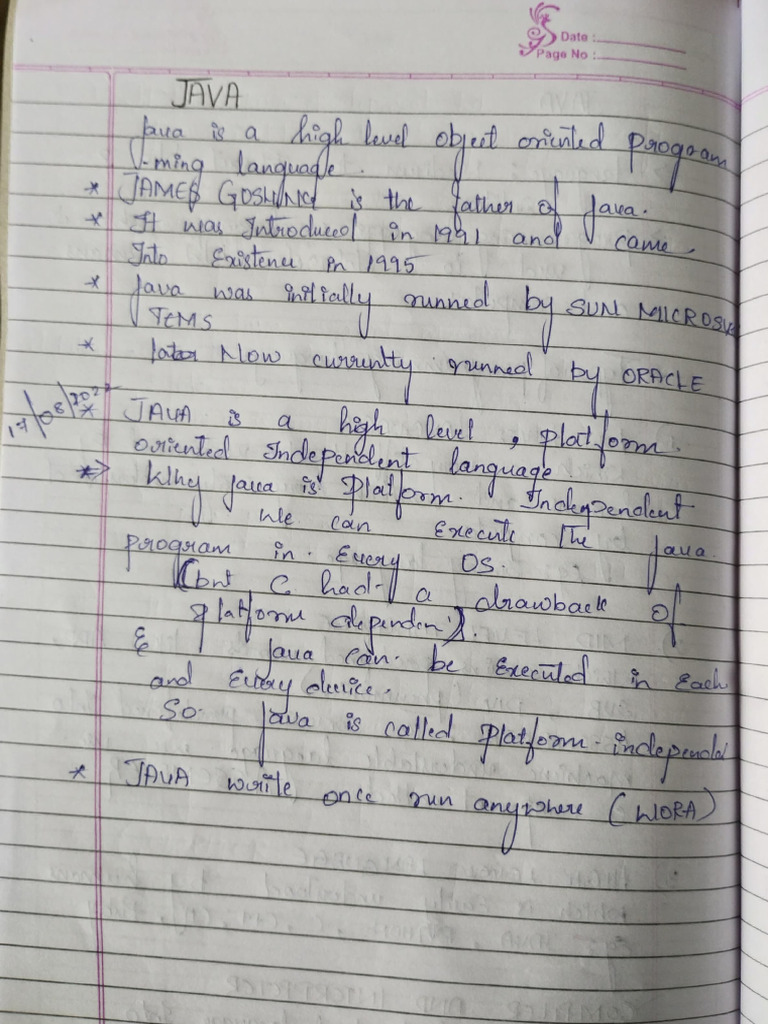 Date :
Page No :
JAVA
Java is a high level object oriented program
-ming language.
* JAMES GOSLING is the father of Java.
* It was Introduced in 1991 and came
Into Existence in 1995
* Java was initially runned by SUN MICROSYS
TEMS
* later Now currently runned by ORACLE
17/08/2022
* JAVA is a high level, platform
oriented Independent language.
*⇒ Why Java is Platform Independent
We can execute The Java
program in Every OS.
(but C had a drawback of
platform dependen).
& Java can be Executed in Each
and Every device.
So Java is called platform-independ
* JAVA write once run anywhere (WORA)